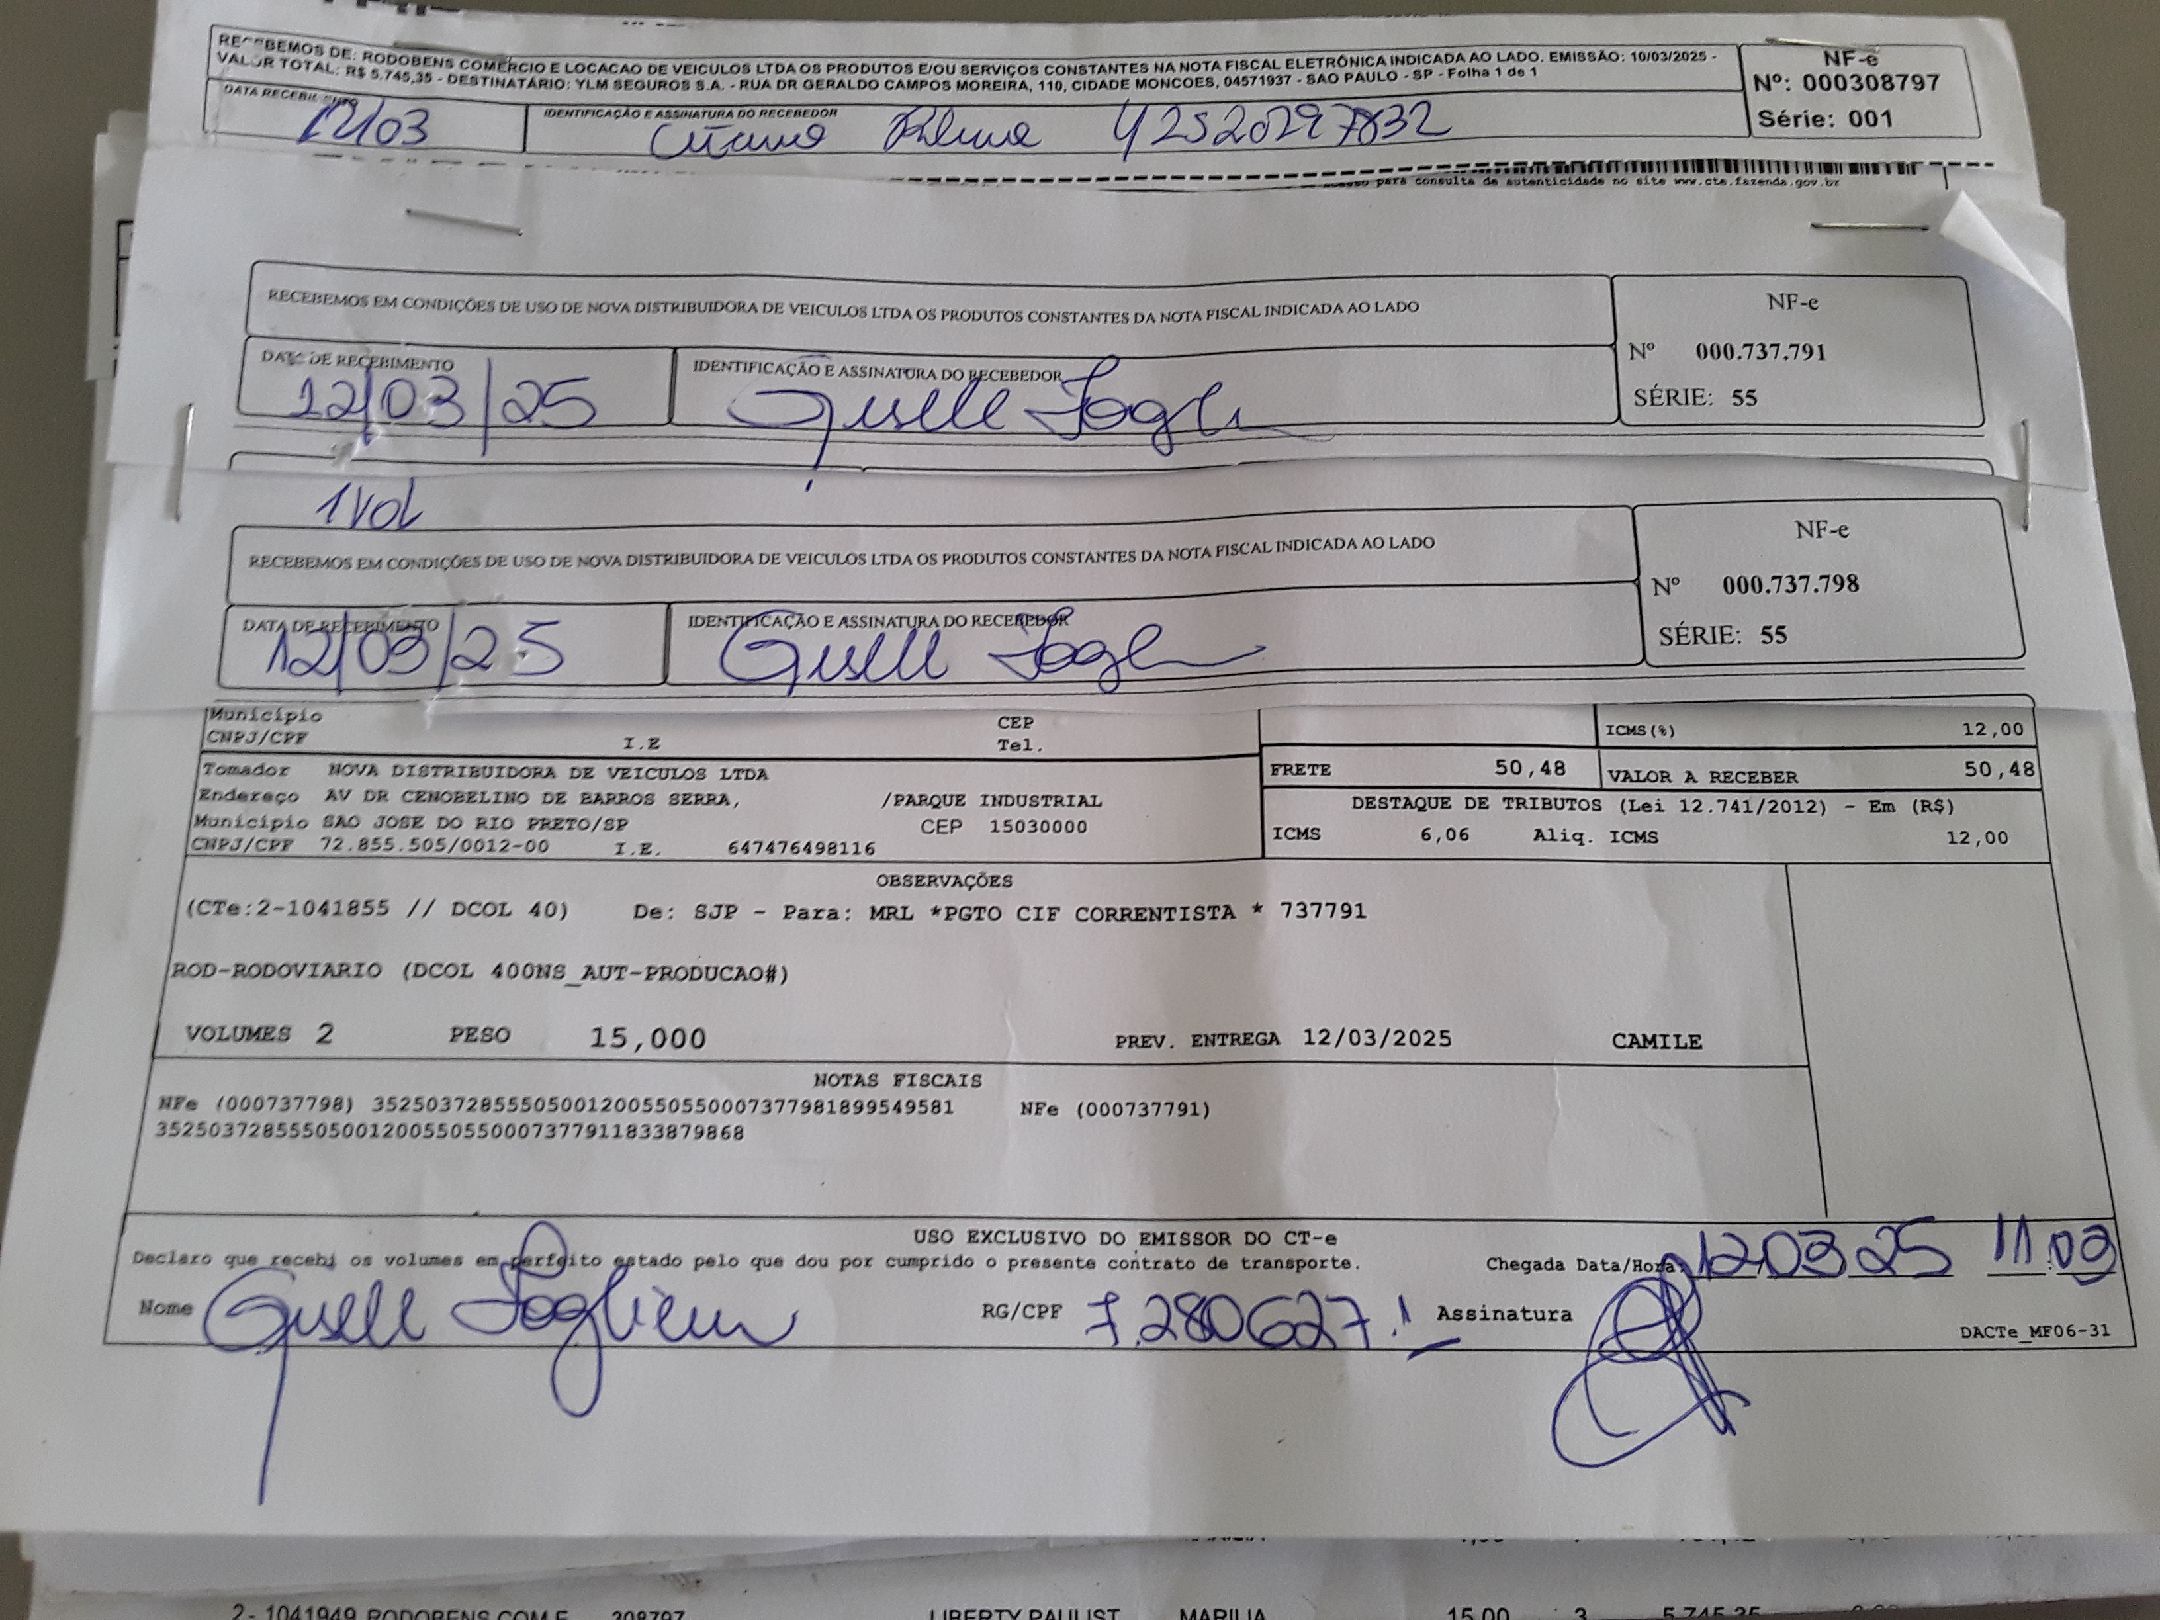 RECEBEMOS DE: RODOBENS COMERCIO E LOCACAO DE VEICULOS LTDA OS PRODUTOS E/OU SERVIÇOS CONSTANTES NA NOTA FISCAL ELETRÔNICA INDICADA AO LADO. EMISSÃO: 10/03/2025 -
VALOR TOTAL: R$ 5.745,35 - DESTINATÁRIO: YLM SEGUROS S.A. - RUA DR GERALDO CAMPOS MOREIRA, 110, CIDADE MONCOES, 04571937 - SAO PAULO - SP - Folha 1 de 1
NF-e
Nº: 000308797
Série: 001
DATA RECEBIMENTO
12/03
IDENTIFICAÇÃO E ASSINATURA DO RECEBEDOR
42520297832
acesso para consulta de autenticidade no site www.cte.fazenda.gov.br
RECEBEMOS EM CONDIÇÕES DE USO DE NOVA DISTRIBUIDORA DE VEICULOS LTDA OS PRODUTOS CONSTANTES DA NOTA FISCAL INDICADA AO LADO
NF-e
Nº 000.737.791
SÉRIE: 55
DATA DE RECEBIMENTO
12/03/25
IDENTIFICAÇÃO E ASSINATURA DO RECEBEDOR
Giselle Fogli
1 Vol
RECEBEMOS EM CONDIÇÕES DE USO DE NOVA DISTRIBUIDORA DE VEICULOS LTDA OS PRODUTOS CONSTANTES DA NOTA FISCAL INDICADA AO LADO
NF-e
Nº 000.737.798
SÉRIE: 55
DATA DE RECEBIMENTO
12/03/25
IDENTIFICAÇÃO E ASSINATURA DO RECEBEDOR
Giselle
Município CEP
CNPJ/CPF I.E Tel.
ICMS(%) 12,00
Tomador NOVA DISTRIBUIDORA DE VEICULOS LTDA
FRETE 50,48 VALOR A RECEBER 50,48
Endereço AV DR CENOBELINO DE BARROS SERRA, /PARQUE INDUSTRIAL
DESTAQUE DE TRIBUTOS (Lei 12.741/2012) - Em (R$)
Município SAO JOSE DO RIO PRETO/SP CEP 15030000
ICMS 6,06 Aliq. ICMS 12,00
CNPJ/CPF 72.855.505/0012-00 I.E. 647476498116
OBSERVAÇÕES
(CTe:2-1041855 // DCOL 40) De: SJP - Para: MRL *PGTO CIF CORRENTISTA * 737791
ROD-RODOVIARIO (DCOL 400NS_AUT-PRODUCAO#)
VOLUMES 2 PESO 15,000 PREV. ENTREGA 12/03/2025 CAMILE
NOTAS FISCAIS
NFe (000737798) 35250372855505001200550550007377981899549581 NFe (000737791)
35250372855505001200550550007377911833879868
USO EXCLUSIVO DO EMISSOR DO CT-e
Declaro que recebi os volumes em perfeito estado pelo que dou por cumprido o presente contrato de transporte.
Chegada Data/Hora: 12 03 25 11:09
Nome Giselle
RG/CPF 7.280627.1
Assinatura
DACTe_MF06-31
2- 1041949 RODOBENS COM E 308797 LIBERTY PAULIST MARILIA 15,00 3 5.745,35